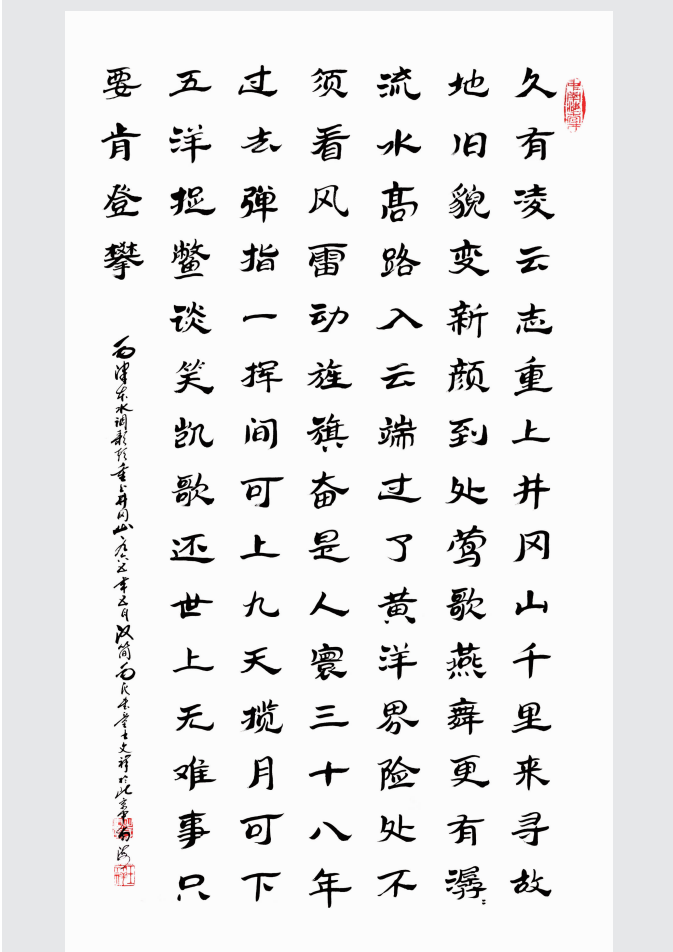 久有凌云志重上井冈山千里来寻故
地旧貌变新颜到处莺歌燕舞更有潺〻
流水髙路入云端过了黄洋界险处不
须看风雷动旌旗奋是人寰三十八年
过去弹指一挥间可上九天揽月可下
五洋捉鳖谈笑凯歌还世上无难事只
要肯登攀
毛泽东水调歌头重上井冈山一九六五年五月汉简